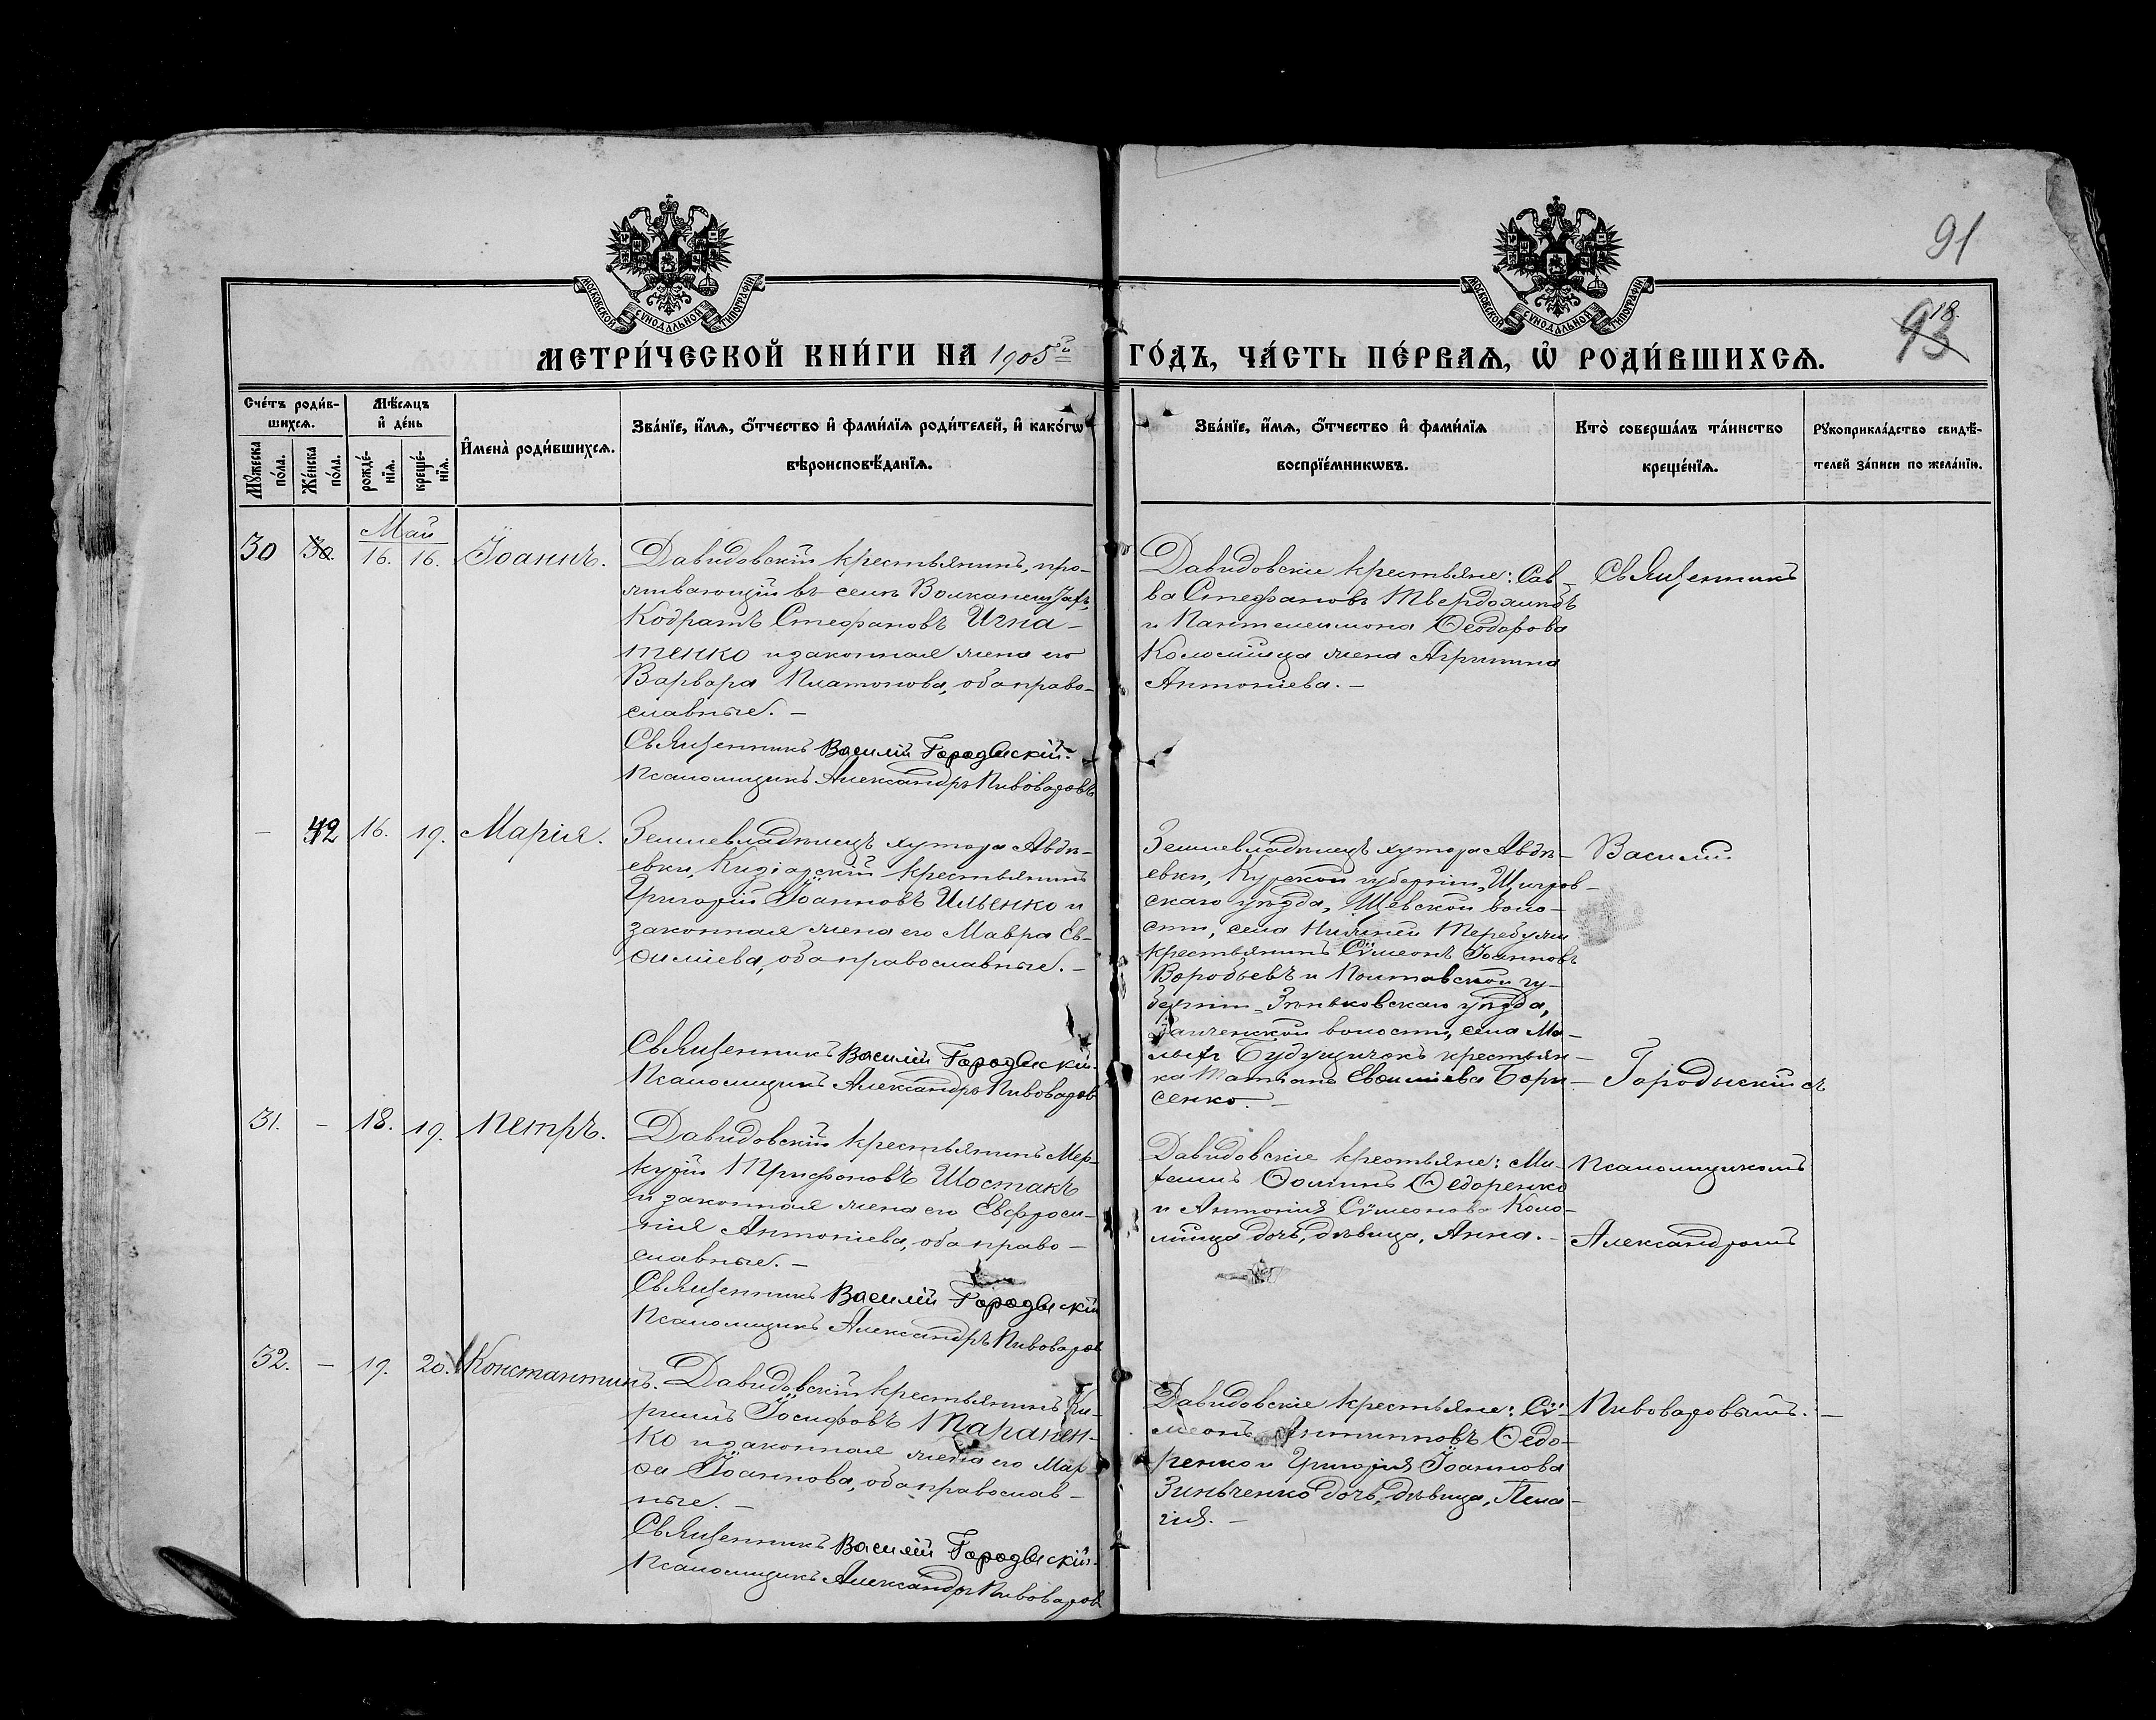 91
18.
93
МОСКОВСКОЙ СѴНОДАЛЬНОЙ ТИПОГРАФІИ
МОСКОВСКОЙ СѴНОДАЛЬНОЙ ТИПОГРАФІИ
МЕТРИ́ЧЕСКОЙ КНИ́ГИ НА 1905ый ГО́ДЪ, ЧА́СТЬ ПЕ́РВАѦ, Ѡ҆ РОДИ́ВШИХСѦ.
Сче́тъ роди́в-
шихсѧ.
Мꙋ́жеска по́ла.
Же́нска по́ла.
Мѣ́сѧцъ
и҆ де́нь
рожде́-
нїѧ.
креще́-
нїѧ.
И҆мена̀ роди́вшихсѧ.
Зва́нїе, и҆́мѧ, ѻ҆́тчество и҆ фами́лїѧ роди́телей, и҆ како́гѡ
вѣроисповѣ́данїѧ.
Зва́нїе, и҆́мѧ, ѻ҆́тчество и҆ фами́лїѧ
воспрїе́мникѡвъ.
Кто̀ соверша́лъ та́инство
креще́нїѧ.
Рꙋкоприкла́дство свидѣ́-
телей за́писи по жела́нїю.
Май
30 30. 16. 16. Іоаннъ.
Давидовскій крестьянинъ, про-
живающій въ селѣ
Кодратъ Стефановъ Игна-
тенко и законная жена его
Варвара Платонова, оба право-
славные. –
Священникъ Василій Городыскій.
Псаломщикъ Александръ Пивоваровъ
Давидовскіе крестьяне: Сав-
ва Стефановъ Твердохлѣбъ
и Пантелеимона Ѳеодорова
Коломійца жена Агрипина
Антоніева. –
Священникъ
– 42 16. 19. Марія.
Землевладѣлецъ хутора Авдѣ-
евки, крестьянинъ
Григорій Іоанновъ Ильенко и
законная жена его Мавра Ев-
ѳиміева, оба православные. –
Священникъ Василій Городыскій.
Псаломщикъ Александръ Пивоваров
Землевладѣлецъ хутора Авдѣ-
евки, Курской губерніи, Щигров-
скаго уѣзда, волос-
сти, села Нижней
крестьянинъ Сѵмеонъ Іоанновъ
Воробьевъ и Полтавской гу-
берніи, Зѣньковскаго уѣзда,
волости, села Ма-
лыхъ Будищичокъ крестьян-
ка Татіана Евѳиміева Бори-
сенко. –
Василій
Городыскій съ
31. – 18. 19. Петръ.
Давидовскій крестьянинъ Мер-
курій Трифоновъ Шостакъ
и законная жена его Евфроси-
нія Антоніева, оба право-
славные. –
Священникъ Василій Городыскій
Псаломщикъ Александръ Пивоваров
Давидовскіе крестьяне: Ми-
хаилъ Ѳоминъ Ѳедоренко
и Антонія Сѵмеонова Коло-
мійца дочь, дѣвица, Анна. –
Псаломщикомъ
Александромъ
32. – 19. 20. Константинъ.
Давидовскій крестьянинъ Ки-
риллъ Іосифовъ Таранен-
ко и законная жена его Мар-
ѳа Іоаннова, оба православ-
ные. –
Священникъ Василій Городыскій.
Псаломщикъ Александръ Пивоваров
Давидовскіе крестьяне: Сѵ-
меонъ Антиповъ Ѳедо-
ренко и Григорія Іоаннова
Зинченко дочь, дѣвица, Пела-
гія. –
Пивоваровымъ. –